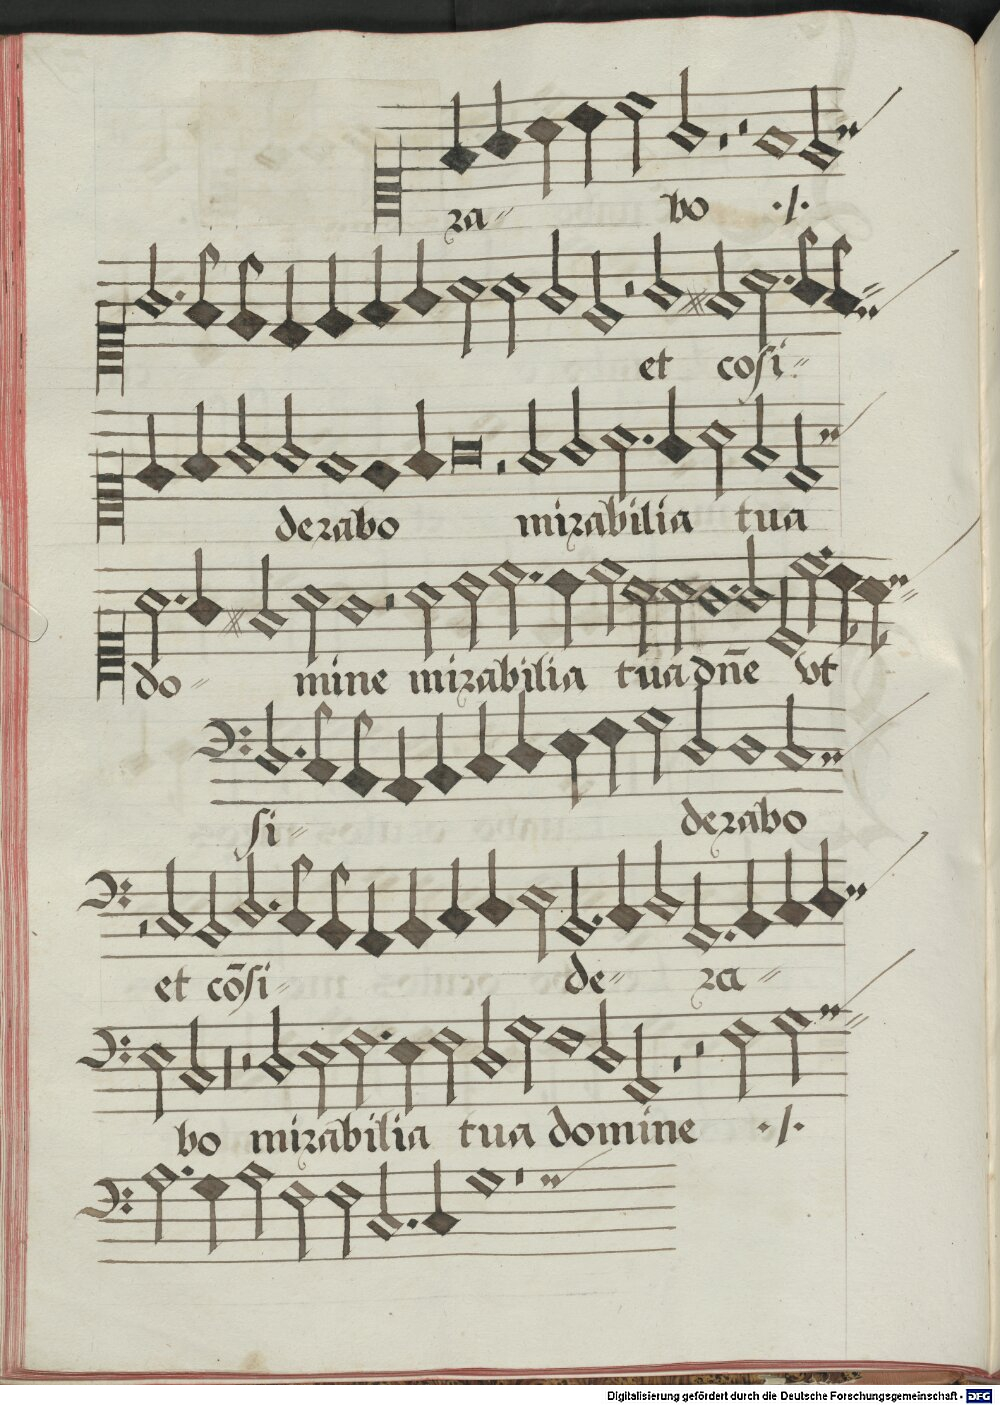 ra- bo ·/·
et cosi-
derabo mirabilia tua
do- mine mirabilia tua dn̄e vt
si- derabo
et cōsi- de- ra-
bo mirabilia tua domine ·/·
Digitalisierung gefördert durch die Deutsche Forschungsgemeinschaft - DFG